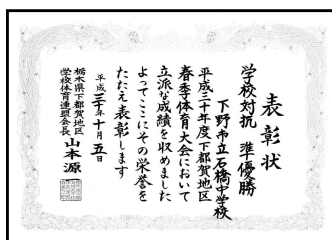 表彰状
学校対抗 準優勝
下野市立石橋中学校
平成三十年度下都賀地区
春季体育大会において
立派な成績を収めました
よってここにその栄誉を
たたえ表彰します
平成三十年十月五日
栃木県下都賀地区
学校体育連盟会長 山本源